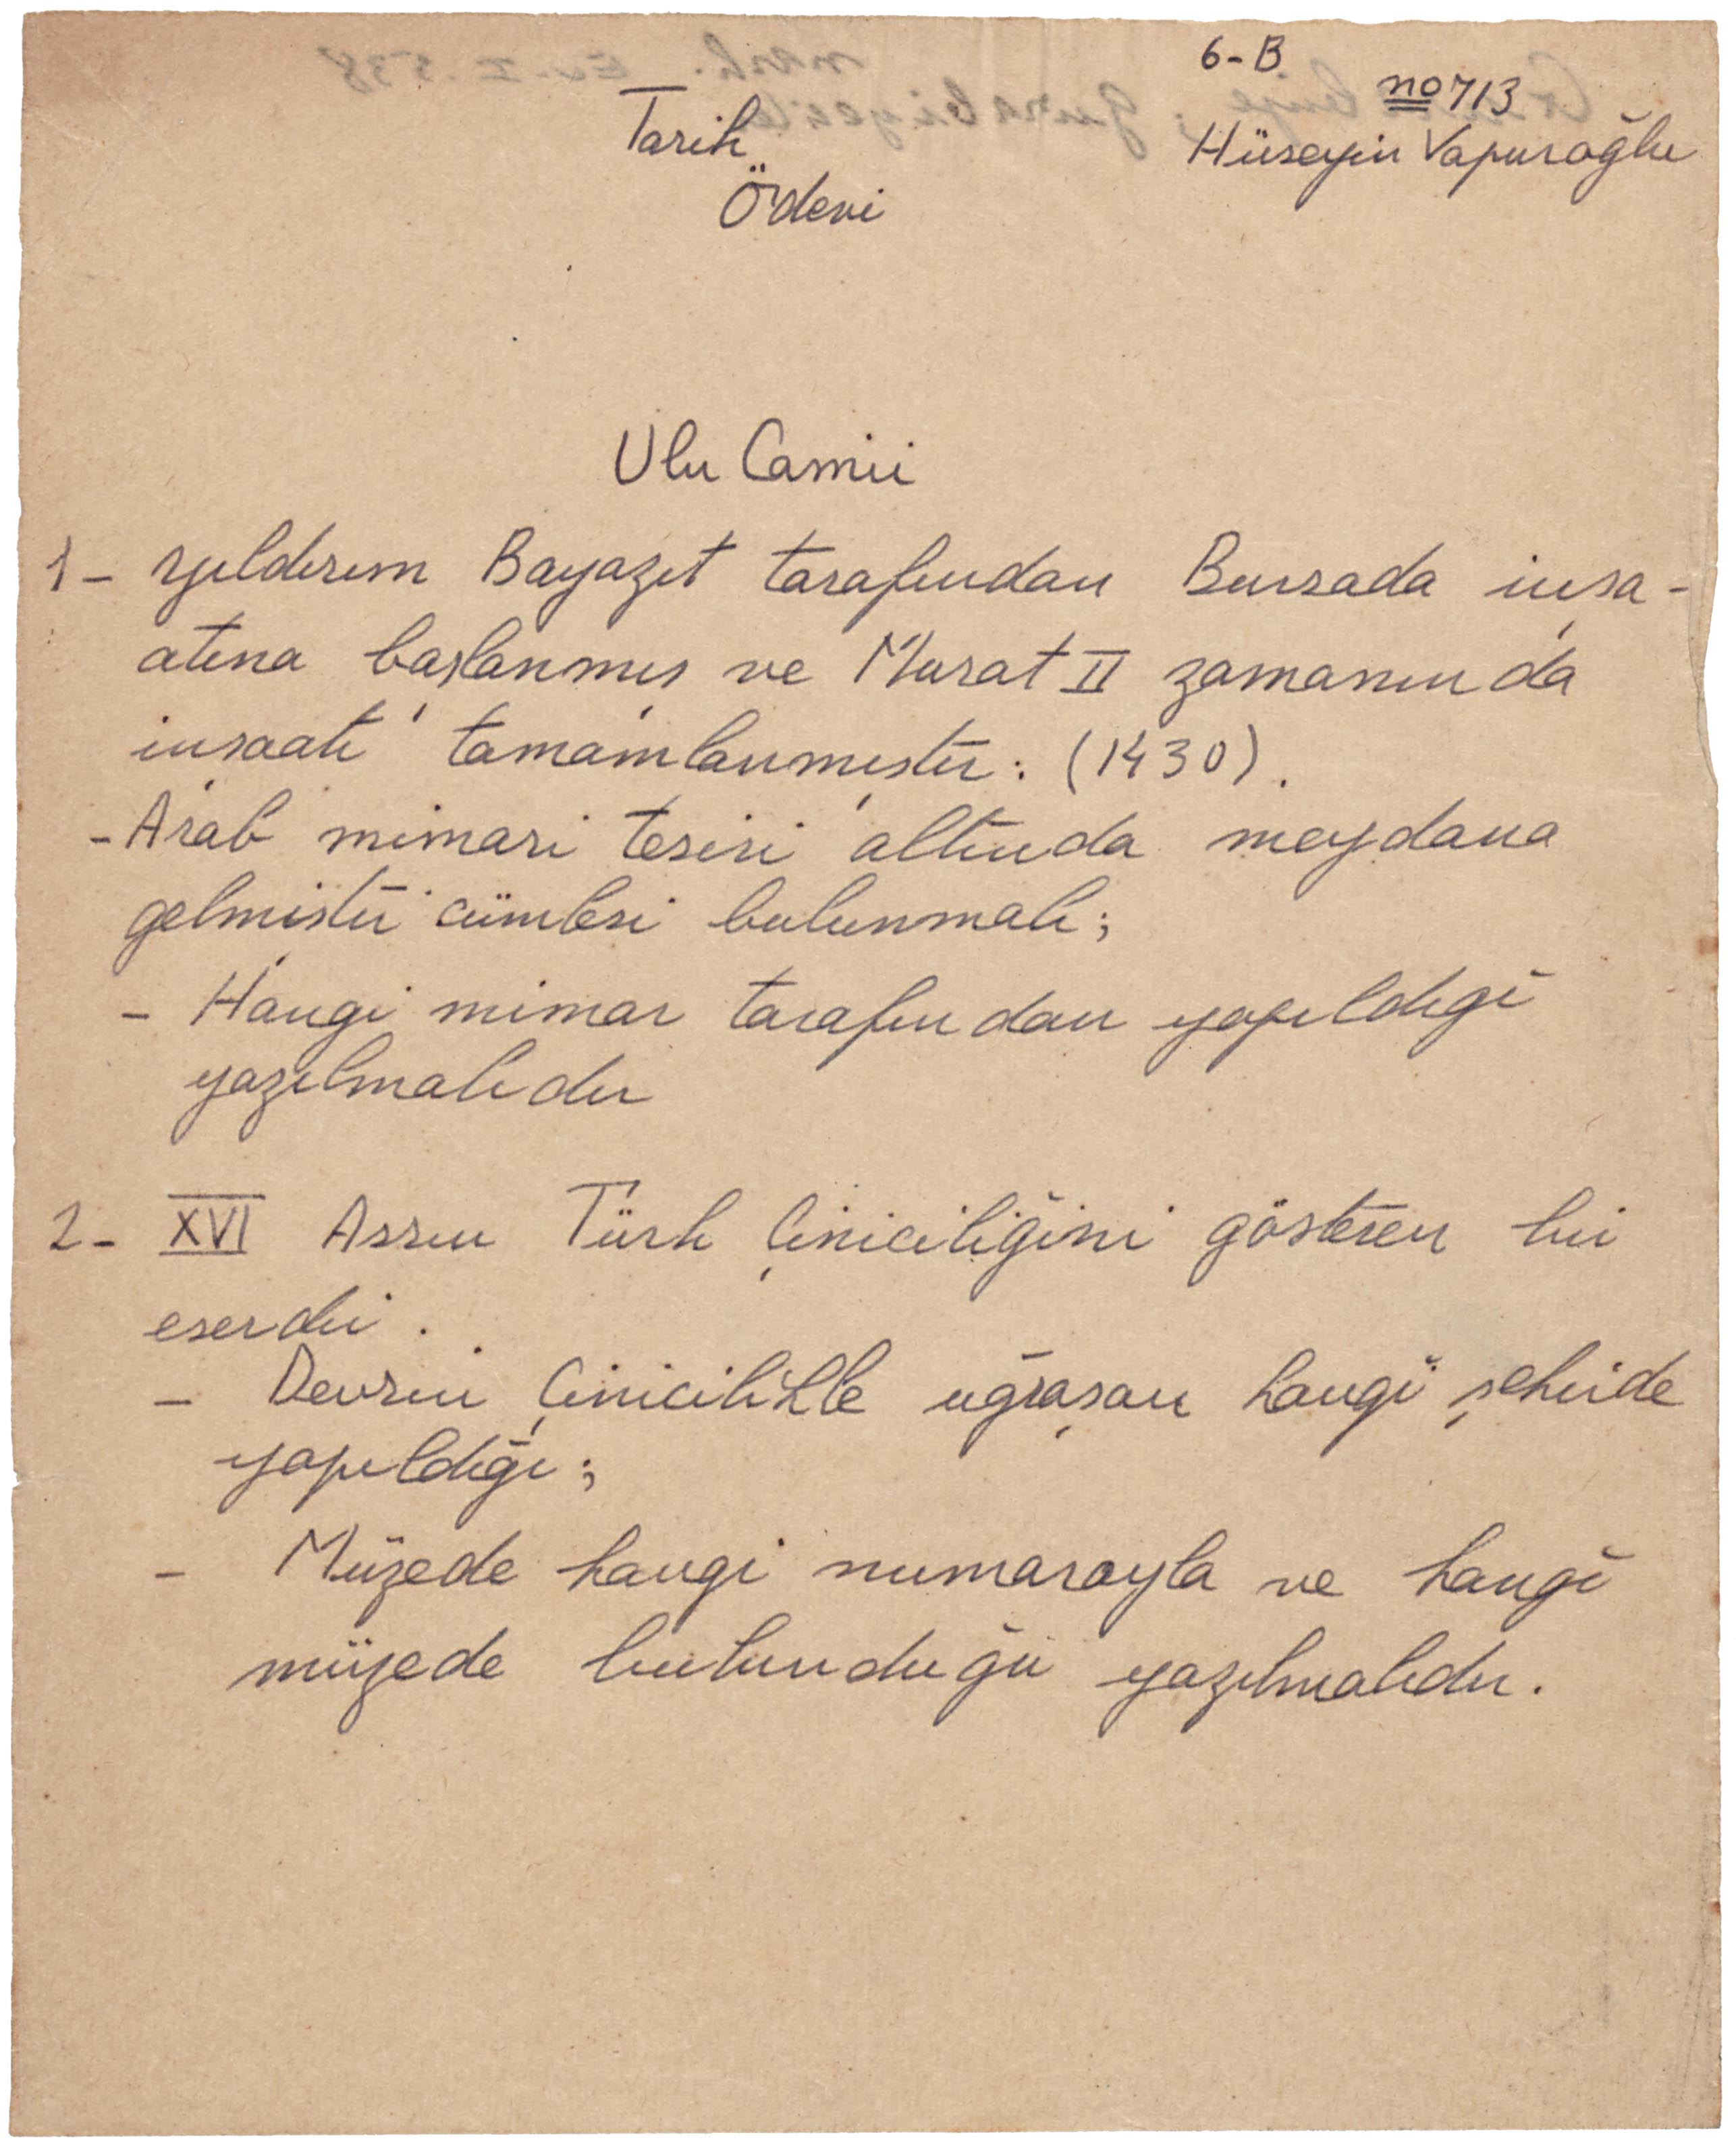 6-B
no 713
Tarih
Hüseyin Vapuroğlu
Ödevi
Ulu Camii
1- Yıldırım Bayazıt tarafından Bursada inşa-
atına başlanmış ve Murat II zamanında
inşaatı tamamlanmıştır. (1430).
- Arab mimari tesiri altında meydana
gelmiştir cümlesi bulunmalı;
- Hangi mimar tarafından yapıldıgı
yazılmalıdır
2- XVI Asrın Türk Çiniciliğini gösteren bir
eserdir.
- Devrin Çinicilikle uğraşan hangi şehirde
yapıldığı;
- Müzede hangi numarayla ve hangi
müzede bulunduğu yazılmalıdır.